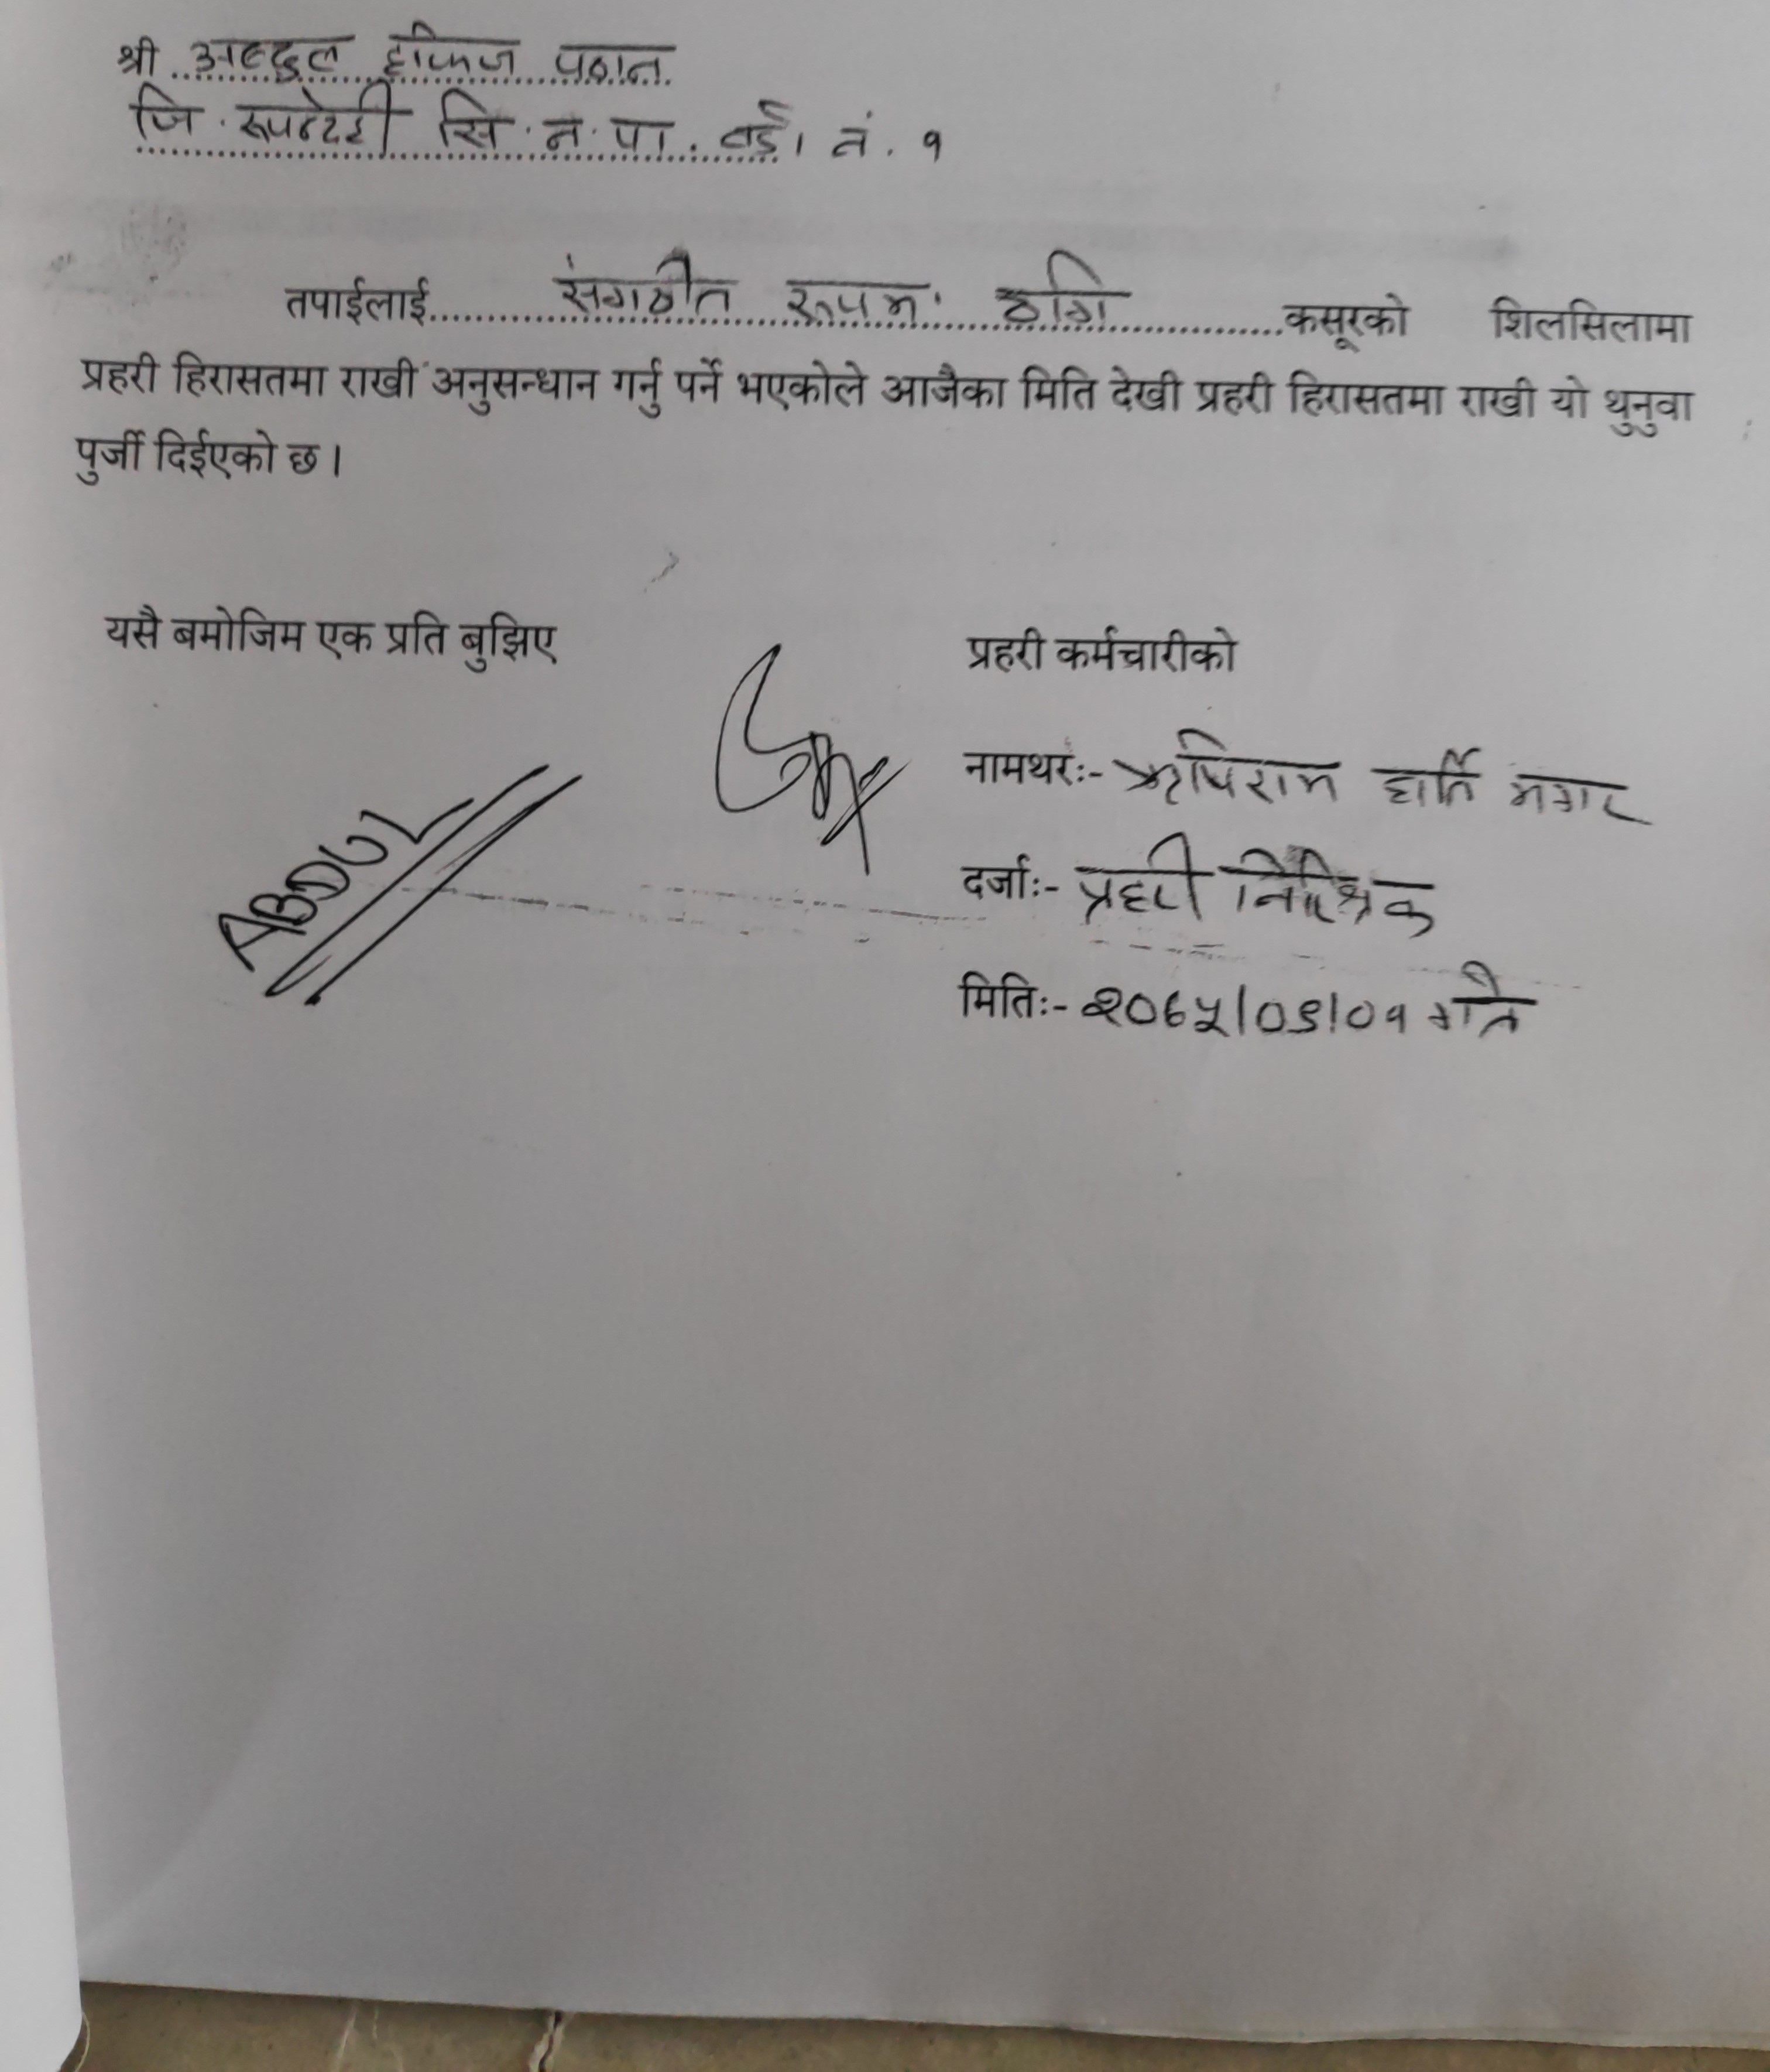 श्री अब्दुल हाफिज पठान
जि. रुपन्देही सि. न. पा. वडा नं. १
तपाईलाई.......संगठीत रुपमा ठगि.......कसूरको शिलसिलामा
प्रहरी हिरासतमा राखी अनुसन्धान गर्नु पर्ने भएकोले आजैका मिति देखी प्रहरी हिरासतमा राखी यो थुनुवा
पुर्जी दिईएको छ।
यसै बमोजिम एक प्रति बुझिए
प्रहरी कर्मचारीको
नामथरः- ऋषिराम घर्ति मगर
ABDUL
दर्जाः- प्रहरी निरिक्षक
मितिः- २०६५/०९/०१ गते